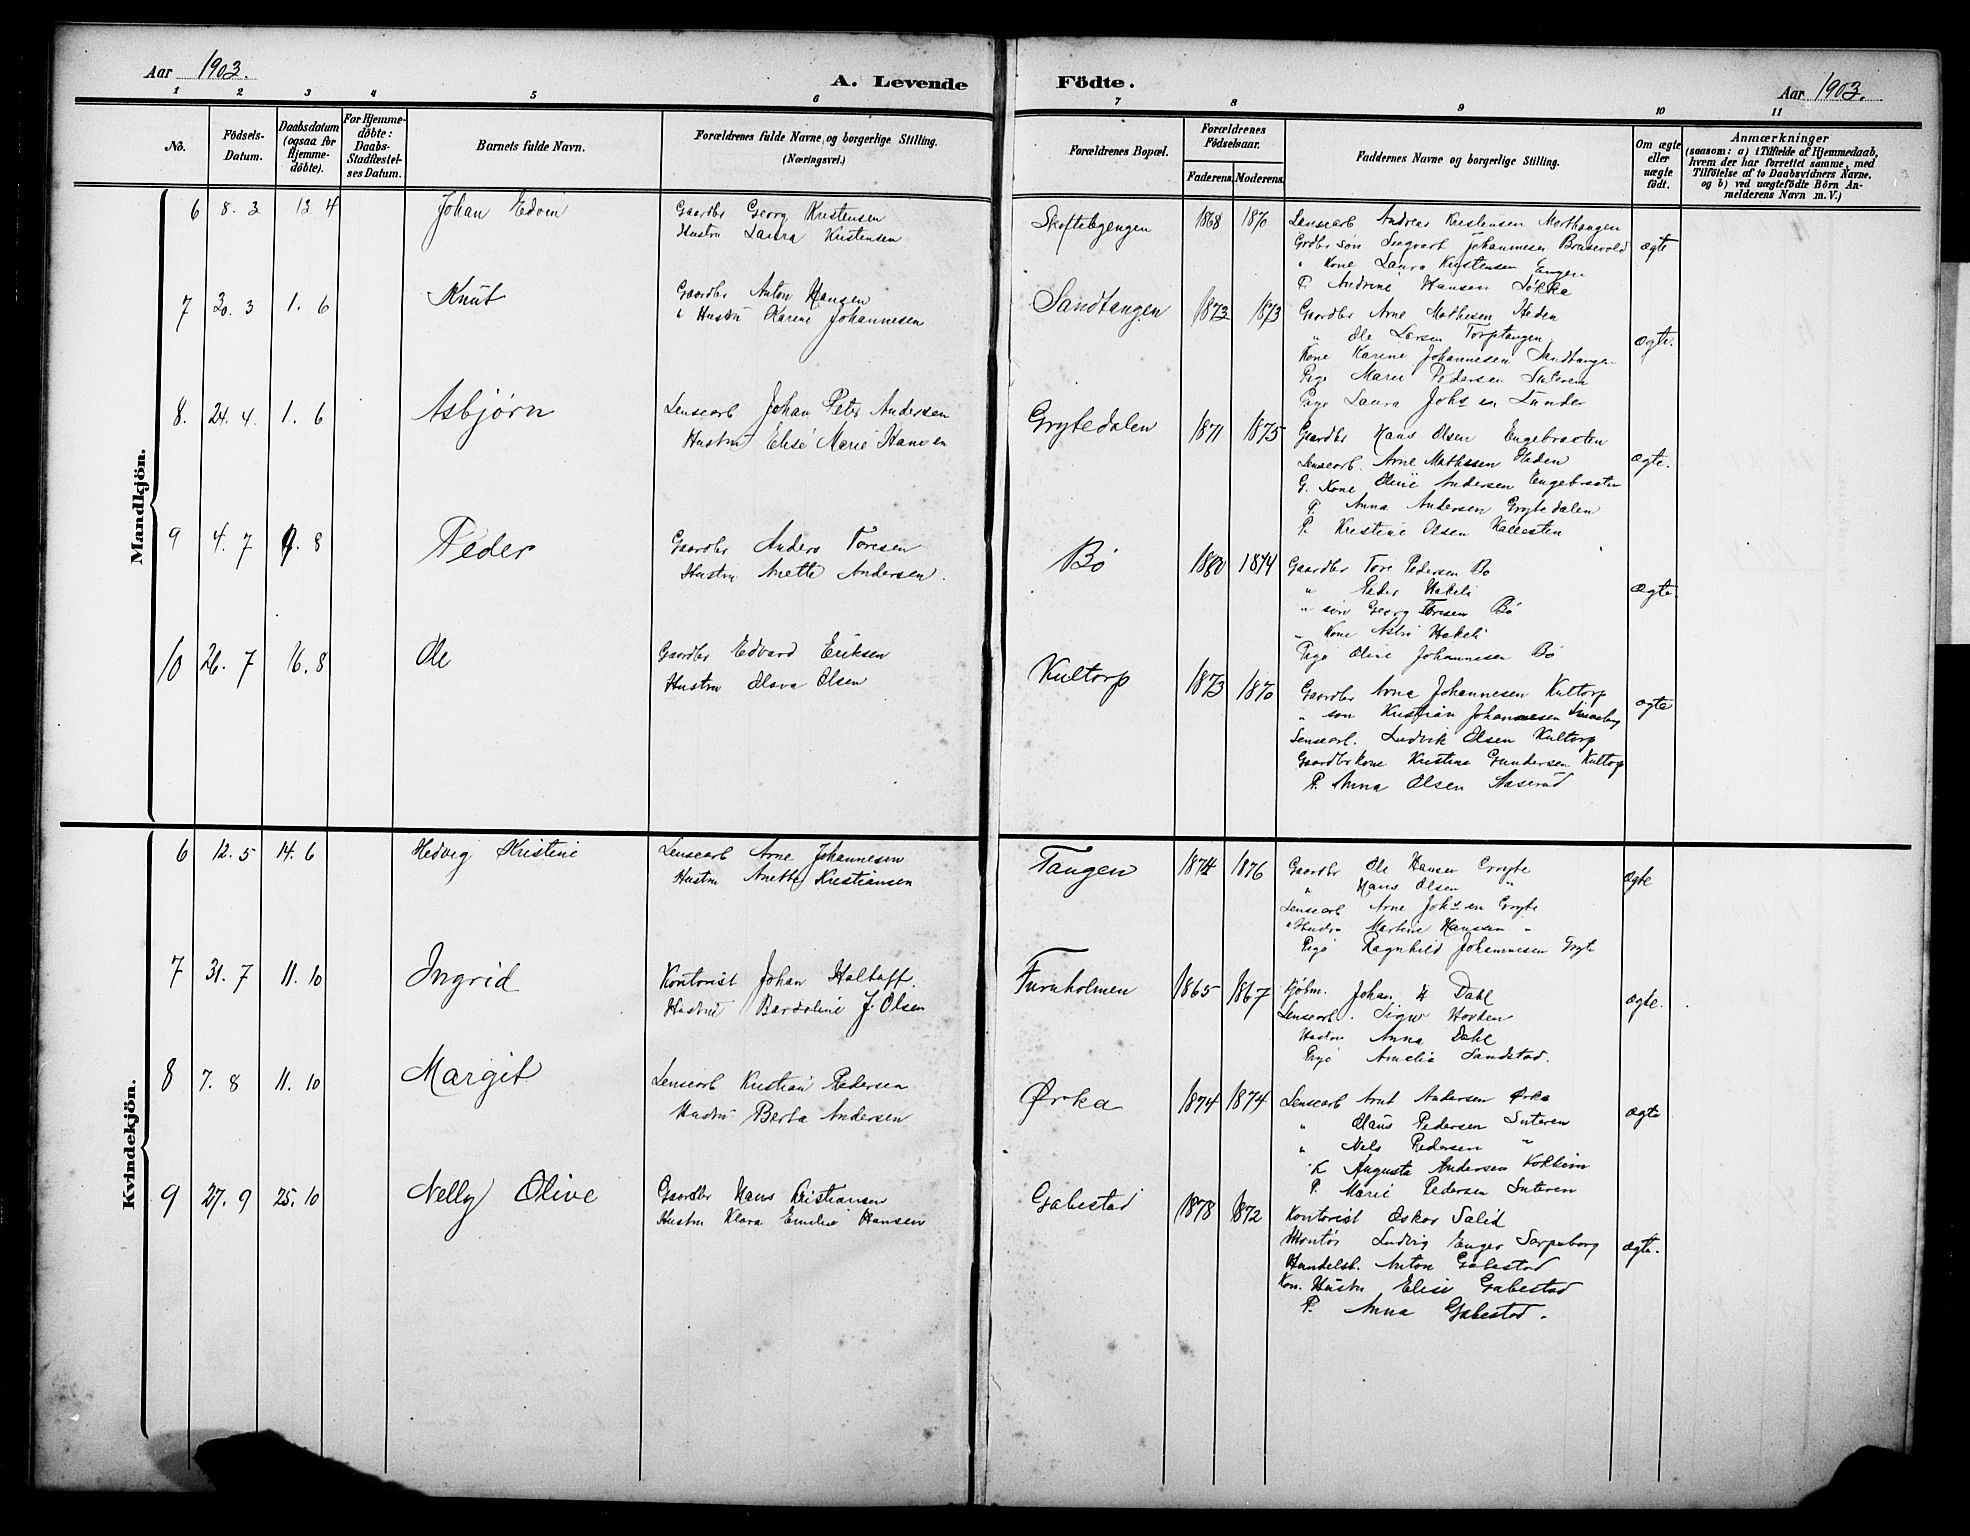 Aar 1903.
A. Levende Födte.
Aar 1903.
1 2 3 4 5 6 7 8 9 10 11
No.
Födsels-Datum.
Daabsdatum (ogsaa for Hjemme-döbte).
For Hjemme-döbte: Daabs-Stadfæstel-ses Datum.
Barnets fulde Navn.
Forældrenes fulde Navne, og borgerlige Stilling.
(Næringsvei.)
Forældrenes Bopæl.
Forældrenes Födselsaar.
Faderens. Moderens.
Faddernes Navne og borgerlige Stilling.
Om ægte eller uægte födt.
Anmærkninger
(saasom: a) i Tilfælde af Hjemmedaab,
hvem der har forrettet samme, med
Tilföielse af to Daabsvidners Navne,
og b) ved uægtefödte Börn An-
melderens Navn m. V.)
Mandkjön.
6 8. 3 13. 4 Johan Edvin
Gaardbr Georg Kristensen
Hustru Laura Kristensen
Skoftebyengen 1868 1870
Lensearb Andreas Kristensen Morthangen
Grdbr søn Sigvart Johannesen
" Kone Laura Kristensen Engen
P. Andrine Hansen Løkka
ægte
7 30. 3 1. 6 Knut
Gaardbr Anton Hansen
Hustru Karine Johannesen
Sandtangen 1873 1873
Gaardbr Arne Mathisen Heden
" Ole Larsen Torptangen
Kone Karine Johannesen Sandtangen
Pige Marie Pedersen Interen
Pige Laura Johsen Lunder
ægte.
8. 24. 4. 1. 6 Asbjørn
Lensearb Johan Peter Andersen
Hustru Elise Marie Hansen
Grytedalen 1871 1875
Gaardbr Hans Olsen Engebraaten
Lensearb. Arne Mathisen Heden
G. Kone Oline Andersen Engebraaten
P. Anna Andersen Grytedalen
P. Kristine Olsen
ægte.
9 4. 7 9. 8 Peder
Gaardbr Anders Toresen
Hustru Anette Andersen.
Bø 1880 1874
Gaardbr Tore Pedersen Bø
" Peder Hakeli
" søn Georg Toresen Bø
" Kone Hakeli
Pige Oline Johannesen Bø
ægte.
10 26. 7 16. 8 Ole
Gaardbr Edvard Eriksen
Hustru Olava Olsen
Kultorp 1873 1870
Gaardbr Arne Johannesen Kultorp
" søn Kristian Johannesen
Lensearb. Ludvik Olsen Kultorp
Gaardbrkone Kristine Gundersen Kultorp
P. Anna Olsen Aaserud
ægte
Kvindekjön.
6 12. 5 14. 6 Hedvig Kristine
Lensearb Arne Johannesen
Hustru Anette Kristiansen
Tangen 1874 1876
Gaardbr Ole Hansen Gryte
" Hans Olsen "
Lensearb Arne Johsen Gryte
Hustru Martine Hanssen "
Pige Ragnhild Johannesen Gryte
ægte
7 31. 7 11. 10 Ingrid
Kontorist Johan Holtaff.
Hustru Bardoline J. Olsen
Furuholmen 1865 1867
Kjøbm. Johan H Dahl
Lensearb. Sigw Hovden
Hustru Anna Dahl
Pige Amelie Sandstad.
ægte.
8 7. 8 11. 10 Margit
Lensearb Kristian Pedersen
Hustru Berta Andersen
Ørka 1874 1874
Lensearb Arnt Andersen Ørka
" Olaus Pedersen Interen
" Nils Pedersen "
K Augusta Andersen Kokkim
P. Marie Pedersen Interen
ægte
9 27. 9 25. 10 Nelly Olive
Gaardbr Hans Kristiansen
Hustru Klara Emilie Hansen
Gabestad 1878 1872
Kontorist Oskar Salid
Montør Ludvig Enger Sarpsborg
Handelsb. Anton Gabestad
Kon. Hustru Elise Gabestad
P. Anna Gabestad.
ægte.